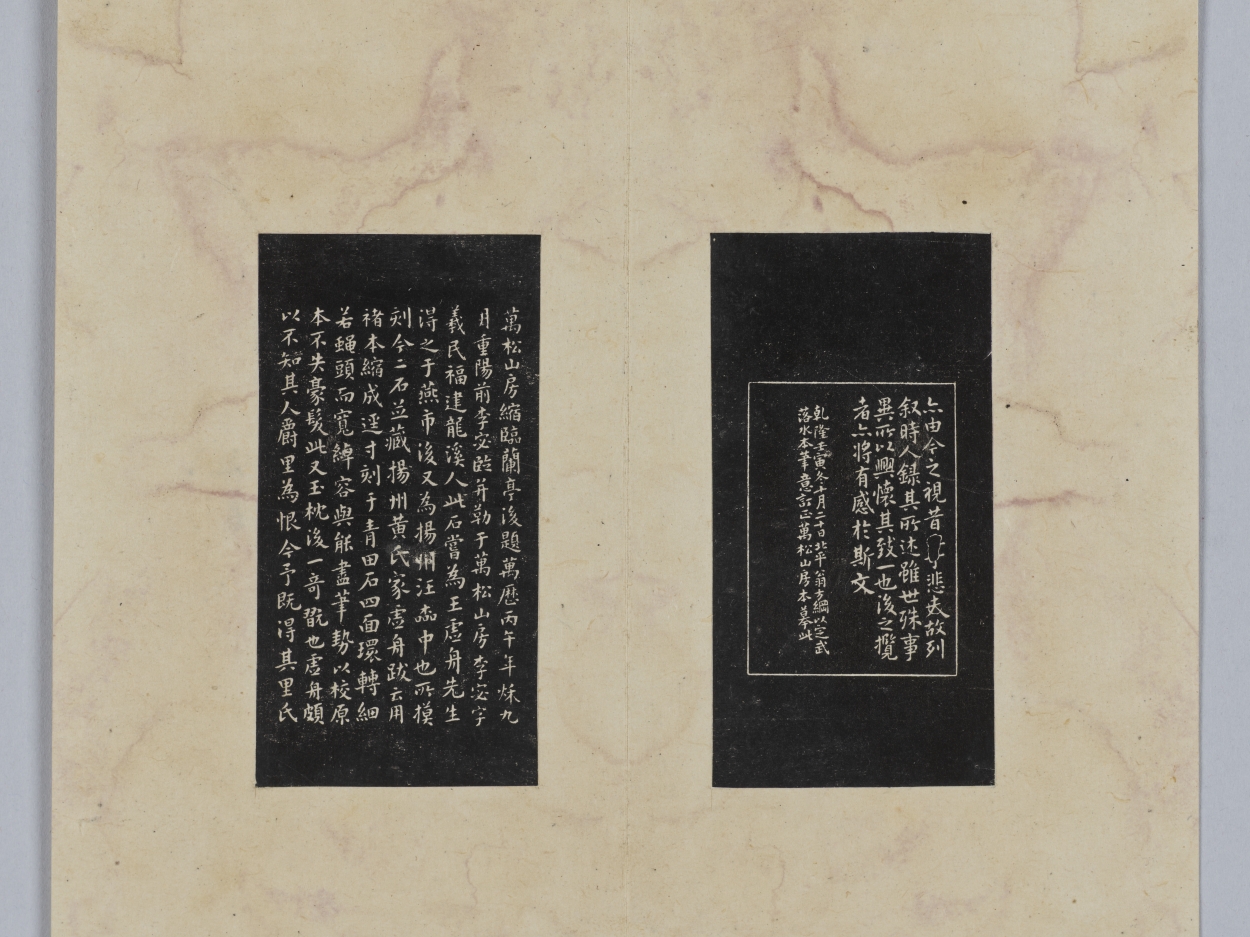 亦由今之視昔悲夫故列
叙時人錄其所述雖世殊事
異所以興懷其致一也後之攬
者亦將有感於斯文
乾隆壬寅冬十月二十日北平翁方綱以定武
落水本筆意訂正萬松山房本摹此
萬松山房縮臨蘭亭後題萬曆丙午年炑九
月重陽前李宓臨并勒于萬松山房李宓字
羲民福建龍溪人此石嘗為王虛舟先生
得之于燕市後又為揚州汪中也所摸
刻今二石並藏揚州黃氏家虛舟跋云用
褚本縮成逕寸刻于青田石四面環轉細
若蠅頭而寬綽容與能盡筆勢以校原
本不失豪髮此又玉枕後一奇翫也虛舟頗
以不知其人爵里為恨今予既得其里氏